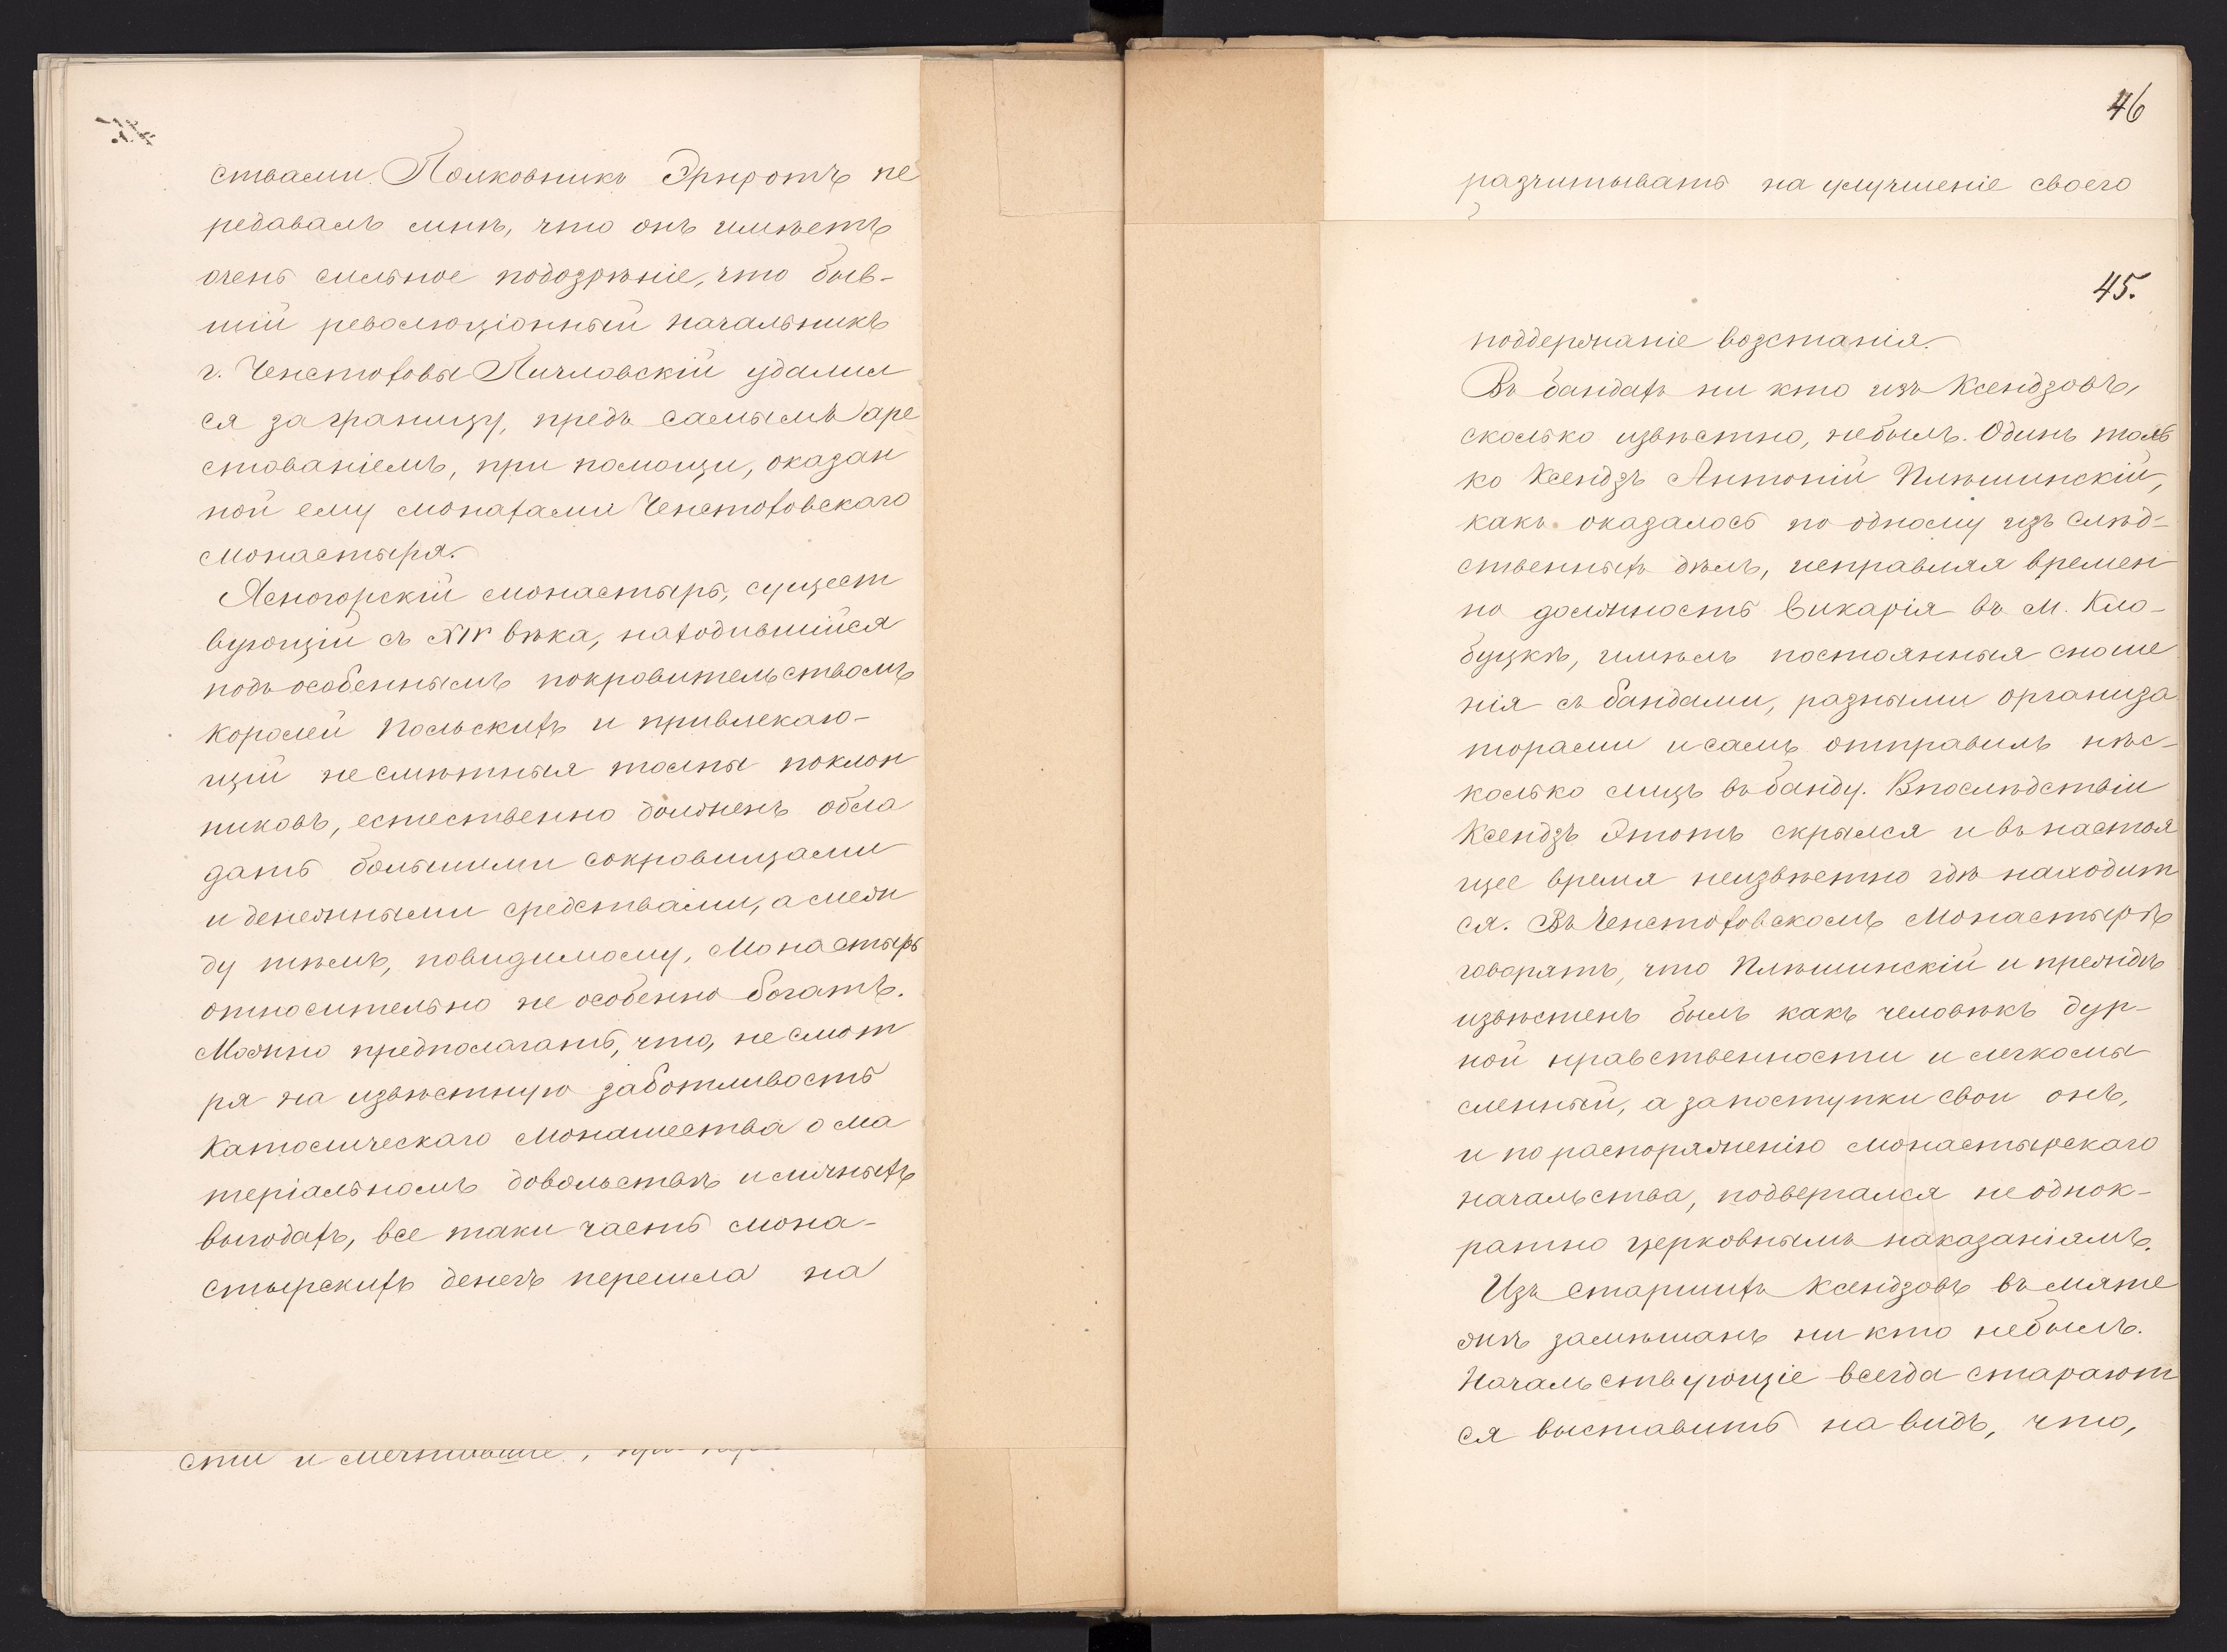 ствами. Полковникъ Эрнротъ пе
редавалъ мнѣ, что онъ имѣетъ
очень сильное подозрѣніе, что быв-
шій революціонный начальникъ
г. Ченстоховы Пичловскій удалил
ся заграницу, предъ самымъ аре
стованіемъ, при помощи, оказан
ной ему монахами Ченстоховскаго
монастыря.
Ясногорскій монастырь, сущест
вующій съ XIV вѣка, находившійся
подъ особеннымъ покровительствомъ
Королей Польскихъ и привлекаю-
щій несмѣтныя толпы поклон
никовъ, естественно долженъ обла
дать большими сокровищами
и денежными средствами, а меж
ду тѣмъ, повидимому, Монастырь
относительно не особенно богатъ.
Можно предполагать, что, не смот
ря на извѣстную заботливость
Католическаго монашества о ма
теріальномъ довольствѣ и личныхъ
выгодахъ, все таки часть мона-
стырскихъ денегъ перешла на
сти и
46
разчитывать на улучшеніе своего
45.
поддержаніе возстанія.
Въ бандахъ ни кто изъ Ксендзовъ,
сколько извѣстно, небылъ. Одинъ толь
ко Ксендзъ Антоній Плѣшинскій,
какъ оказалось по одному изъ слѣд-
ственныхъ дѣлъ, исправляя времен
но должность Викарія въ М. Кло-
буцкѣ, имѣлъ постоянныя сноше
нія съ бандами, разными организа
торами и самъ отправилъ нѣс-
колько лицъ въ банду. Впослѣдствіи
Ксендзъ этотъ скрылся и въ настоя
щее время неизвѣстно гдѣ находит
ся. Въ Ченстоховскомъ Монастырѣ
говорятъ, что Плѣшинскій и прежде
извѣстенъ былъ какъ человѣкъ дур-
ной нравственности и легкомы
сленный, а запоступки свои онъ,
и по распоряженію монастырскаго
начальства, подвергался неоднок-
ратно церковнымъ наказаніямъ.
Изъ старшихъ Ксендзовъ въ мяте
жѣ замѣшанъ ни кто небылъ.
Начальствующіе всегда старают
ся выставить на видъ, что,